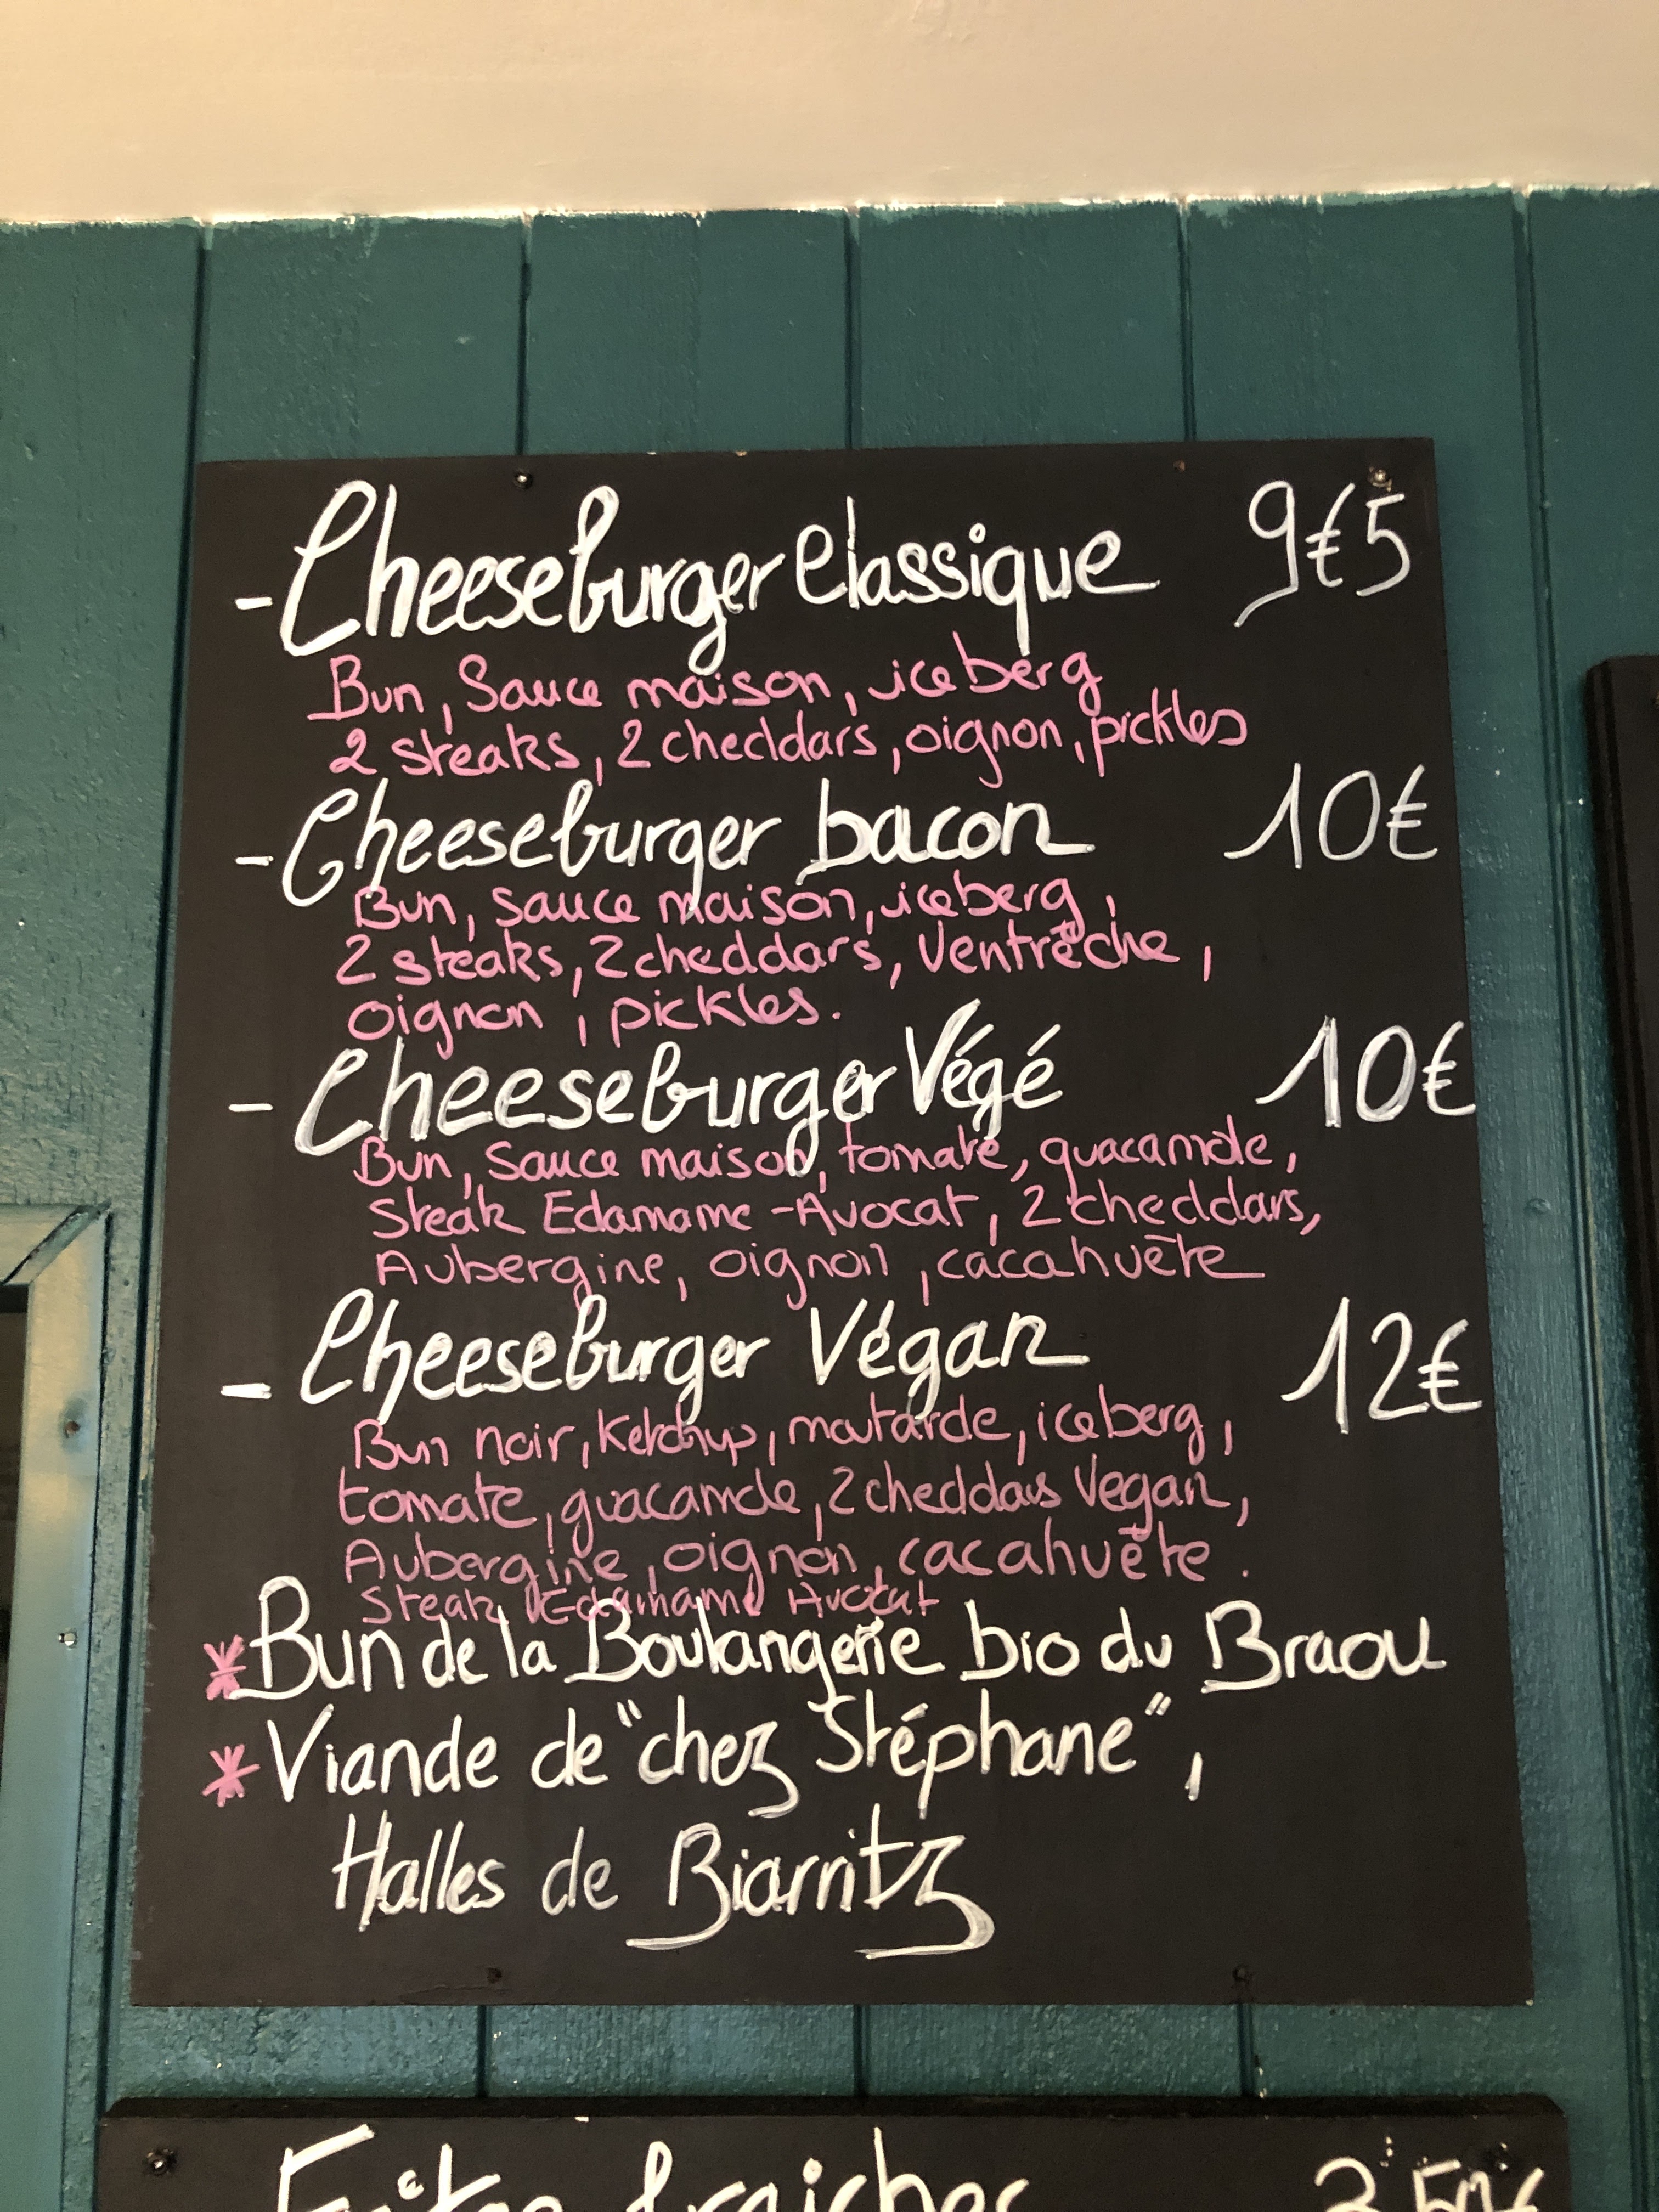 - Cheeseburger Classique 9€5
Bun, Sauce maison, iceberg
2 steaks, 2 cheddars, oignon, pickles
- Cheeseburger bacon 10€
Bun, sauce maison, iceberg,
2 steaks, 2 cheddars, Ventrêche,
oignon, pickles.
- Cheeseburger Végé 10€
Bun, Sauce maison, tomate, guacamole,
Steak Edamame - Avocat, 2 cheddars,
Aubergine, oignon, cacahuète
- Cheeseburger Végan 12€
Bun noir, Ketchup, moutarde, iceberg,
tomate, guacamole, 2 cheddars Vegan,
Aubergine, oignon, cacahuète.
Steak Edamame Avocat
* Bun de la Boulangerie bio du Braou
* Viande de "chez Stéphane",
Halles de Biarritz
Frites fraîches 3,50€